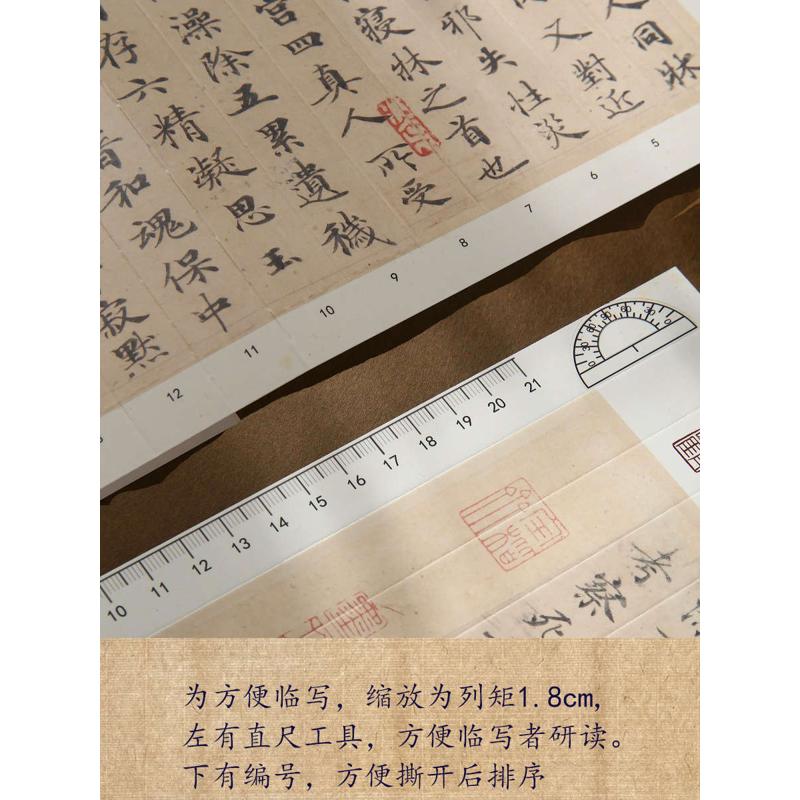 人同牀
又對近
邪失性災
寢牀之首也
宮四真人所受
澡除五累遺穢
存六精凝思玉
音和魂保中
寂默
5
6
7
8
9
10
11
12
10 11 12 13 14 15 16 17 18 19 20 21
0 30 60 90 60 30 0
考察死
为方便临写，缩放为列矩1.8cm，
左有直尺工具，方便临写者研读。
下有编号，方便撕开后排序